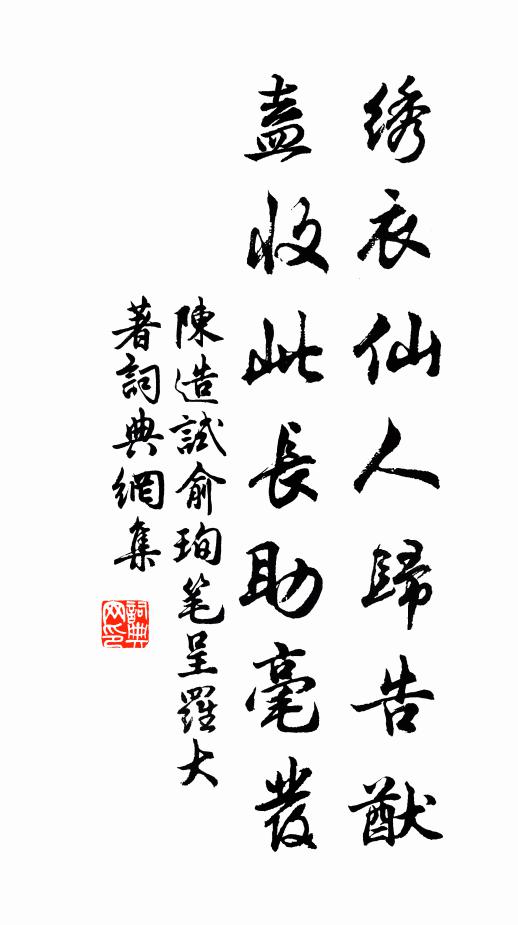 绣衣仙人歸告猷
盍收此長助毫發
陳造試俞珣笔呈羅大
著詞典網集
詞典網印